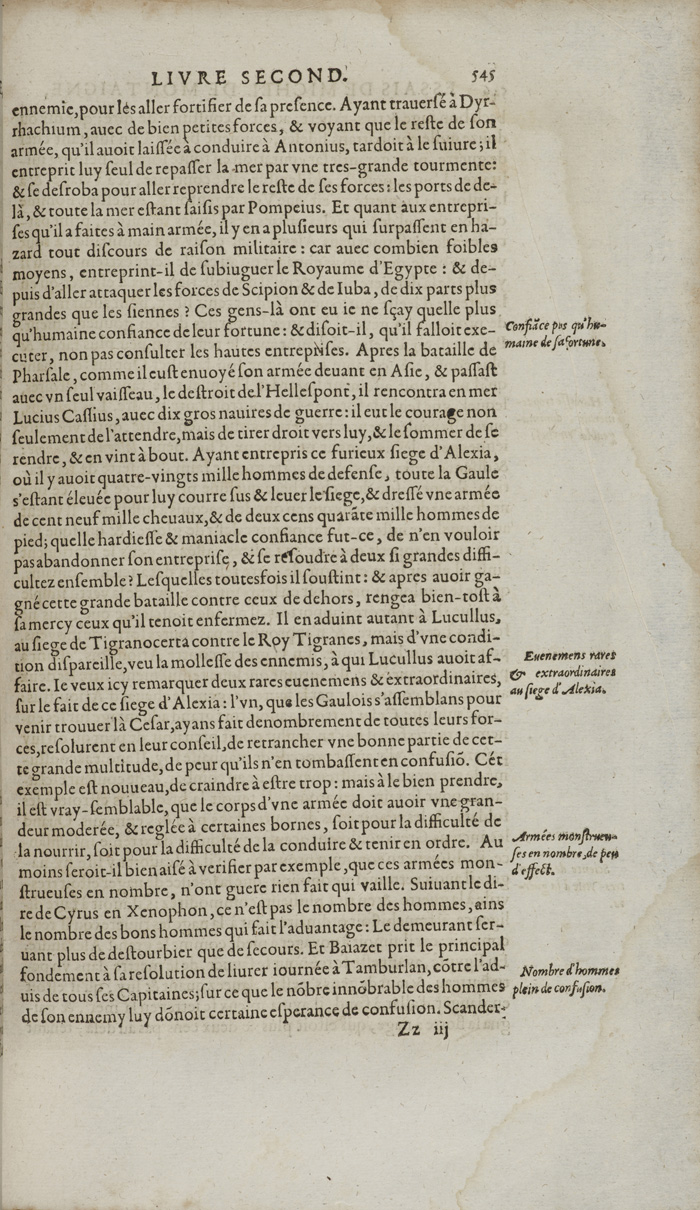 LIVRE SECOND. 545
ennemie, pour les aller fortifier de ſa preſence. Ayant trauerſé à Dyr-
rhachium, auec de bien petites forces, & voyant que le reſte de ſon
armée, qu'il auoit laiſſée à conduire à Antonius, tardoit à le ſuiure; il
entreprit luy ſeul de repaſſer la mer par vne tres-grande tourmente:
& ſe deſroba pour aller reprendre le reſte de ſes forces: les ports de de-
là, & toute la mer eſtant ſaiſis par Pompeius. Et quant aux entrepri-
ſes qu'il a faites à main armée, il y en a pluſieurs qui ſurpaſſent en ha-
zard tout diſcours de raiſon militaire: car auec combien foibles
moyens, entreprint-il de ſubiuguer le Royaume d'Egypte: & de-
puis d'aller attaquer les forces de Scipion & de Iuba, de dix parts plus
grandes que les ſiennes? Ces gens-là ont eu ie ne ſçay quelle plus
qu'humaine confiance de leur fortune: & diſoit-il, qu'il falloit exe-
cuter, non pas conſulter les hautes entrepriſes. Apres la bataille de
Pharſale, comme il euſt enuoyé ſon armée deuant en Aſie, & paſſaſt
auec vn ſeul vaiſſeau, le deſtroit de l'Helleſpont, il rencontra en mer
Lucius Caſſius, auec dix gros nauires de guerre: il eut le courage non
ſeulement de l'attendre, mais de tirer droit vers luy, & le ſommer de ſe
rendre, & en vint à bout. Ayant entrepris ce furieux ſiege d'Alexia,
où il y auoit quatre-vingts mille hommes de defenſe, toute la Gaule
s'eſtant éleuée pour luy courre ſus & leuer le ſiege, & dreſſé vne armée
de cent neuf mille cheuaux, & de deux cens quarãte mille hommes de
pied; quelle hardieſſe & maniacle confiance fut-ce, de n'en vouloir
pas abandonner ſon entrepriſe, & ſe reſoudre à deux ſi grandes diffi-
cultez enſemble? Leſquelles toutesfois il ſouſtint: & apres auoir ga-
gné cette grande bataille contre ceux de dehors, rengea bien-toſt à
ſa mercy ceux qu'il tenoit enfermez. Il en aduint autant à Lucullus,
au ſiege de Tigranocerta contre le Roy Tigranes, mais d'vne condi-
tion diſpareille, veu la molleſſe des ennemis, à qui Lucullus auoit af-
faire. Ie veux icy remarquer deux rares euenemens & extraordinaires,
ſur le fait de ce ſiege d'Alexia: l'vn, que les Gaulois s'aſſemblans pour
venir trouuer là Ceſar, ayans fait denombrement de toutes leurs for-
ces, reſolurent en leur conſeil, de retrancher vne bonne partie de cet-
te grande multitude, de peur qu'ils n'en tombaſſent en confuſiõ. Cét
exemple eſt nouueau, de craindre à eſtre trop: mais à le bien prendre,
il eſt vray-ſemblable, que le corps d'vne armée doit auoir vne gran-
deur moderée, & reglée à certaines bornes, ſoit pour la difficulté de
la nourrir, ſoit pour la difficulté de la conduire & tenir en ordre. Au
moins ſeroit-il bien aiſé à verifier par exemple, que ces armées mon-
ſtrueuſes en nombre, n'ont guere rien fait qui vaille. Suiuant le di-
re de Cyrus en Xenophon, ce n'eſt pas le nombre des hommes, ains
le nombre des bons hommes qui fait l'aduantage: Le demeurant ſer-
uant plus de deſtourbier que de ſecours. Et Baiazet prit le principal
fondement à ſa reſolution de liurer iournée à Tamburlan, cõtre l'ad-
uis de tous ſes Capitaines; ſur ce que le nõbre innõbrable des hommes
de ſon ennemy luy dõnoit certaine eſperance de confuſion. Scander-
Zz iij
Confiãce plus qu'hu-
maine de ſa fortune.
Euenemens rares
& extraordinaires
au ſiege d'Alexia.
Armées monſtrueu-
ſes en nombre, de peu
d'effect.
Nombre d'hommes
plein de confuſion.